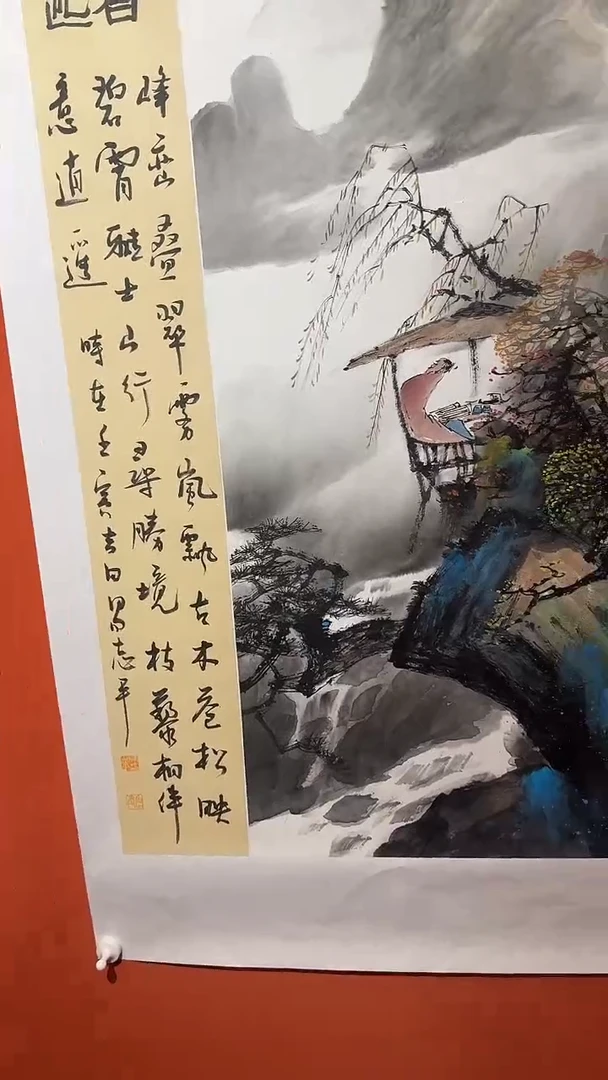 峰峦叠翠雾嵐飘古木苍松映
碧霄雅士山行尋勝境杖藜相伴
意逍遥
時在壬寅吉日吕志平